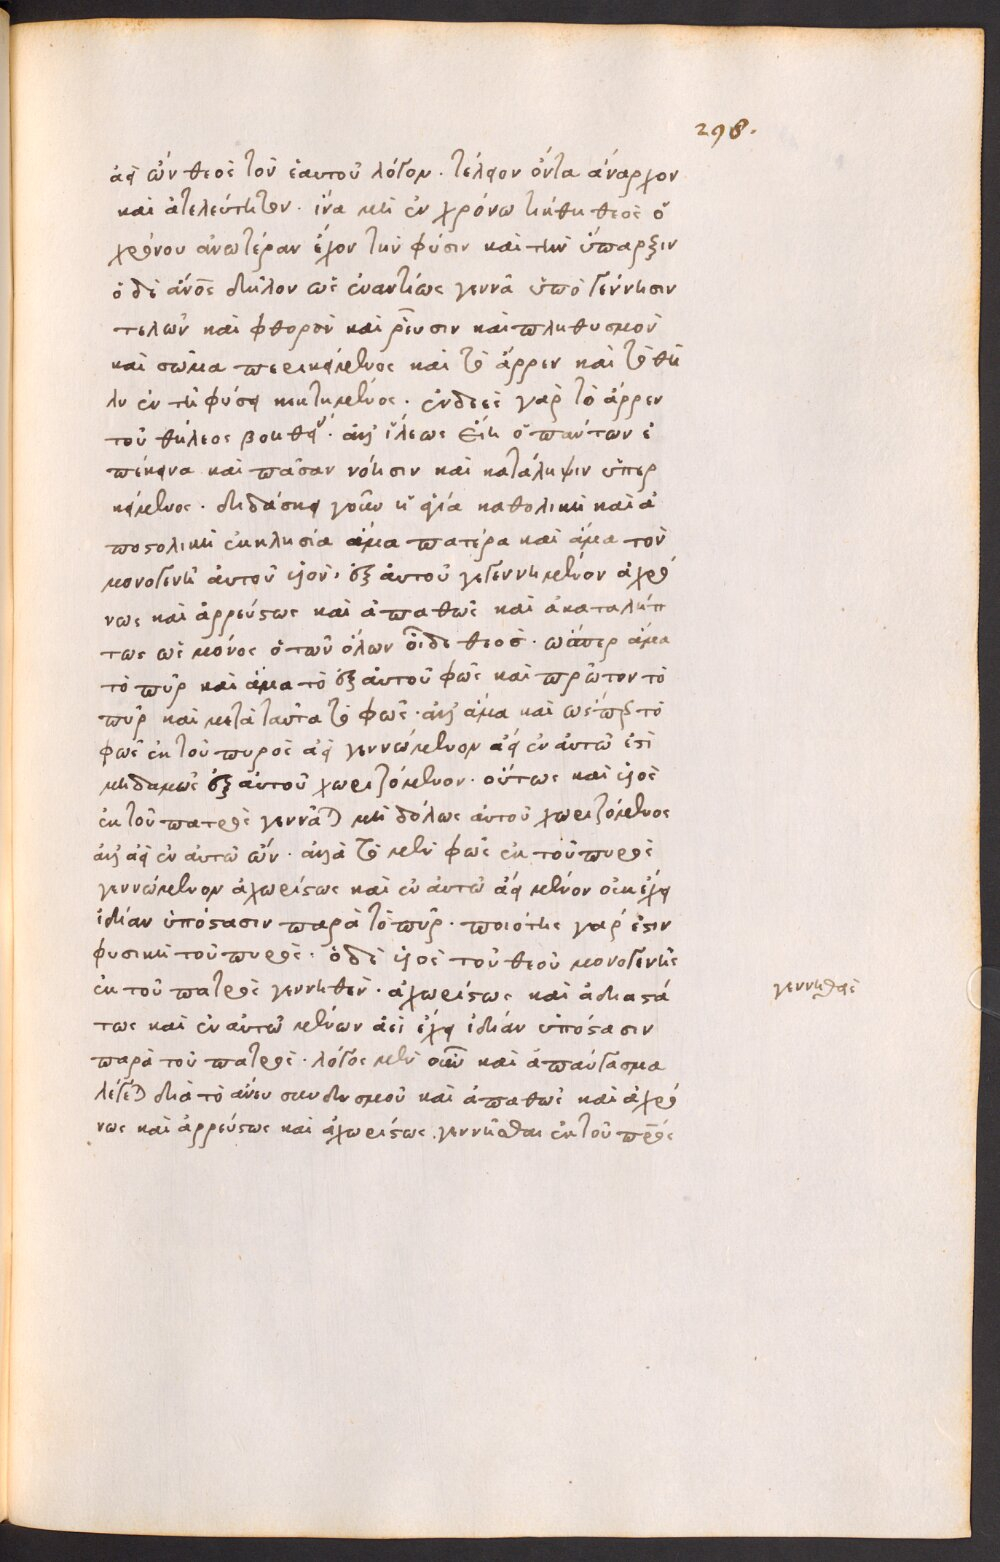 298.
ἀεὶ ὢν θεὸς τὸν ἑαυτοῦ λόγον· τέλειον ὄντα ἄναρχον
καὶ ἀτελεύτητον· ἵνα μὴ ἐν χρόνω τικτη θεὸς ὁ
χρόνου ἀνωτέραν ἔχον τὴν φύσιν καὶ τὴν ὕπαρξιν
ὁ δὲ ἄνος δηλον ὡς ἐναντίως γεννᾶ ὑπὸ γέννησιν
τελῶν καὶ φθορὸν καὶ ῥεῦσιν καὶ πληθυσμὸν
καὶ σῶμα περικείμενος καὶ τὸ ἄρρεν καὶ τὸ θῆ
λυ ἐν τῆ φύσει κεκτημένος· ἐνδεὲς γαρ τὸ ἄρρεν
τοῦ θήλεος βοηθεί· ἀλλ ἵλεως εἴη ὁ πάντων ἐ
πέκεινα καὶ πᾶσαν νόησιν καὶ κατάληψιν ὑπερ
κείμενος· διδάσκει γοῦν ἡ ἁγία καθολικὴ καὶ ἀ
ποστολικὴ ἐκκλησία ἅμα πατέρα καὶ ἅμα τὸν
μονογενῆ αὐτοῦ υἱὸν, ἐξ αὐτοῦ γεγεννημένον ἀχρό
νως καὶ ἀρρεύστως καὶ ἀπαθῶς καὶ ἀκαταλήπ
τως ὡς μόνος ὁ τῶν ὅλων οἶδε θεὸσ· ὥσπερ ἅμα
τὸ πῦρ καὶ ἅμα τὸ ἐξ αὐτοῦ φῶς καὶ πρῶτον τὸ
πῦρ καὶ μετὰ ταῦτα τὸ φῶς· ἀλλ ἅμα καὶ ὡσπερ τὸ
φῶς ἐκ τοῦ πυρὸς ἀεὶ γεννώμενον ἀεὶ ἐν αὐτῶ ἐστὶ
μηδαμῶς ἐξ αὐτοῦ χωριζόμενον· οὕτως καὶ υἱὸς
ἐκ τοῦ πατρὸς γεννᾶται μὴ δόλως αὐτοῦ χωριζόμενος
ἀλλ ἀεὶ ἐν αὐτῶ ὤν· ἀλλὰ τὸ μὲν φῶς ἐκ τοῦ πυρὸς
γεννώμενον ἀχωρίστως καὶ ἐν αὐτῶ ἀεὶ μένον οὐκ ἔχει
ἰδίαν ὑπόστασιν παρὰ τὸ πῦρ· ποιότης γαρ ἐστιν
φυσικὴ τοῦ πυρὸς· ὁ δὲ υἱὸς τοῦ θεοῦ μονογενὴς
ἐκ τοῦ πατρὸς γεννηθεὶν· ἀχωρίστως καὶ ἀδιαστά
γεννηθεὶς
τως καὶ ἐν αὐτῶ μένων ἀεὶ ἔχει ἰδίαν ὑπόστασιν
παρὰ τοῦ πατρὸς· λόγος μὲν οὖν καὶ ἀπαύγασμα
λέγεται διὰ τὸ ἄνευ συνδησμοῦ καὶ ἀπαθῶς καὶ ἀχρό
νως καὶ ἀρρεύστως καὶ ἀχωρίστως γεννῆσθαι ἐκ τοῦ πρὸς